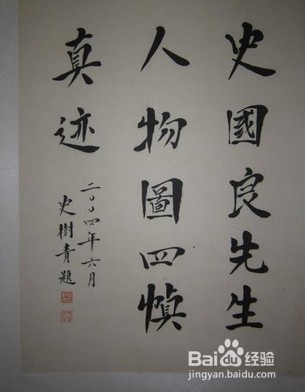 史國良先生
人物圖四幀
真迹
二〇〇四年六月
史樹青題
Bai百度经验
jingyan.baidu.com